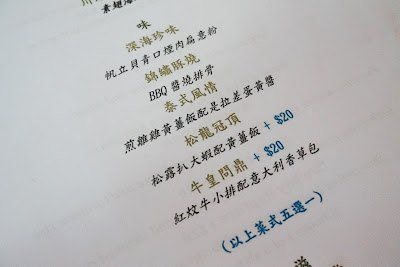 素翅海
味
深海珍味
帆立貝青口煙肉扁意粉
錦繡豚燒
BBQ醬燒排骨
泰式風情
煎雞雞黃薑飯配是拉差蛋黃醬
松龍冠頂
松露扒大蝦配黃薑飯 + $20
牛皇問鼎 + $20
紅炆牛小排配意大利香草包
(以上菜式五選一)